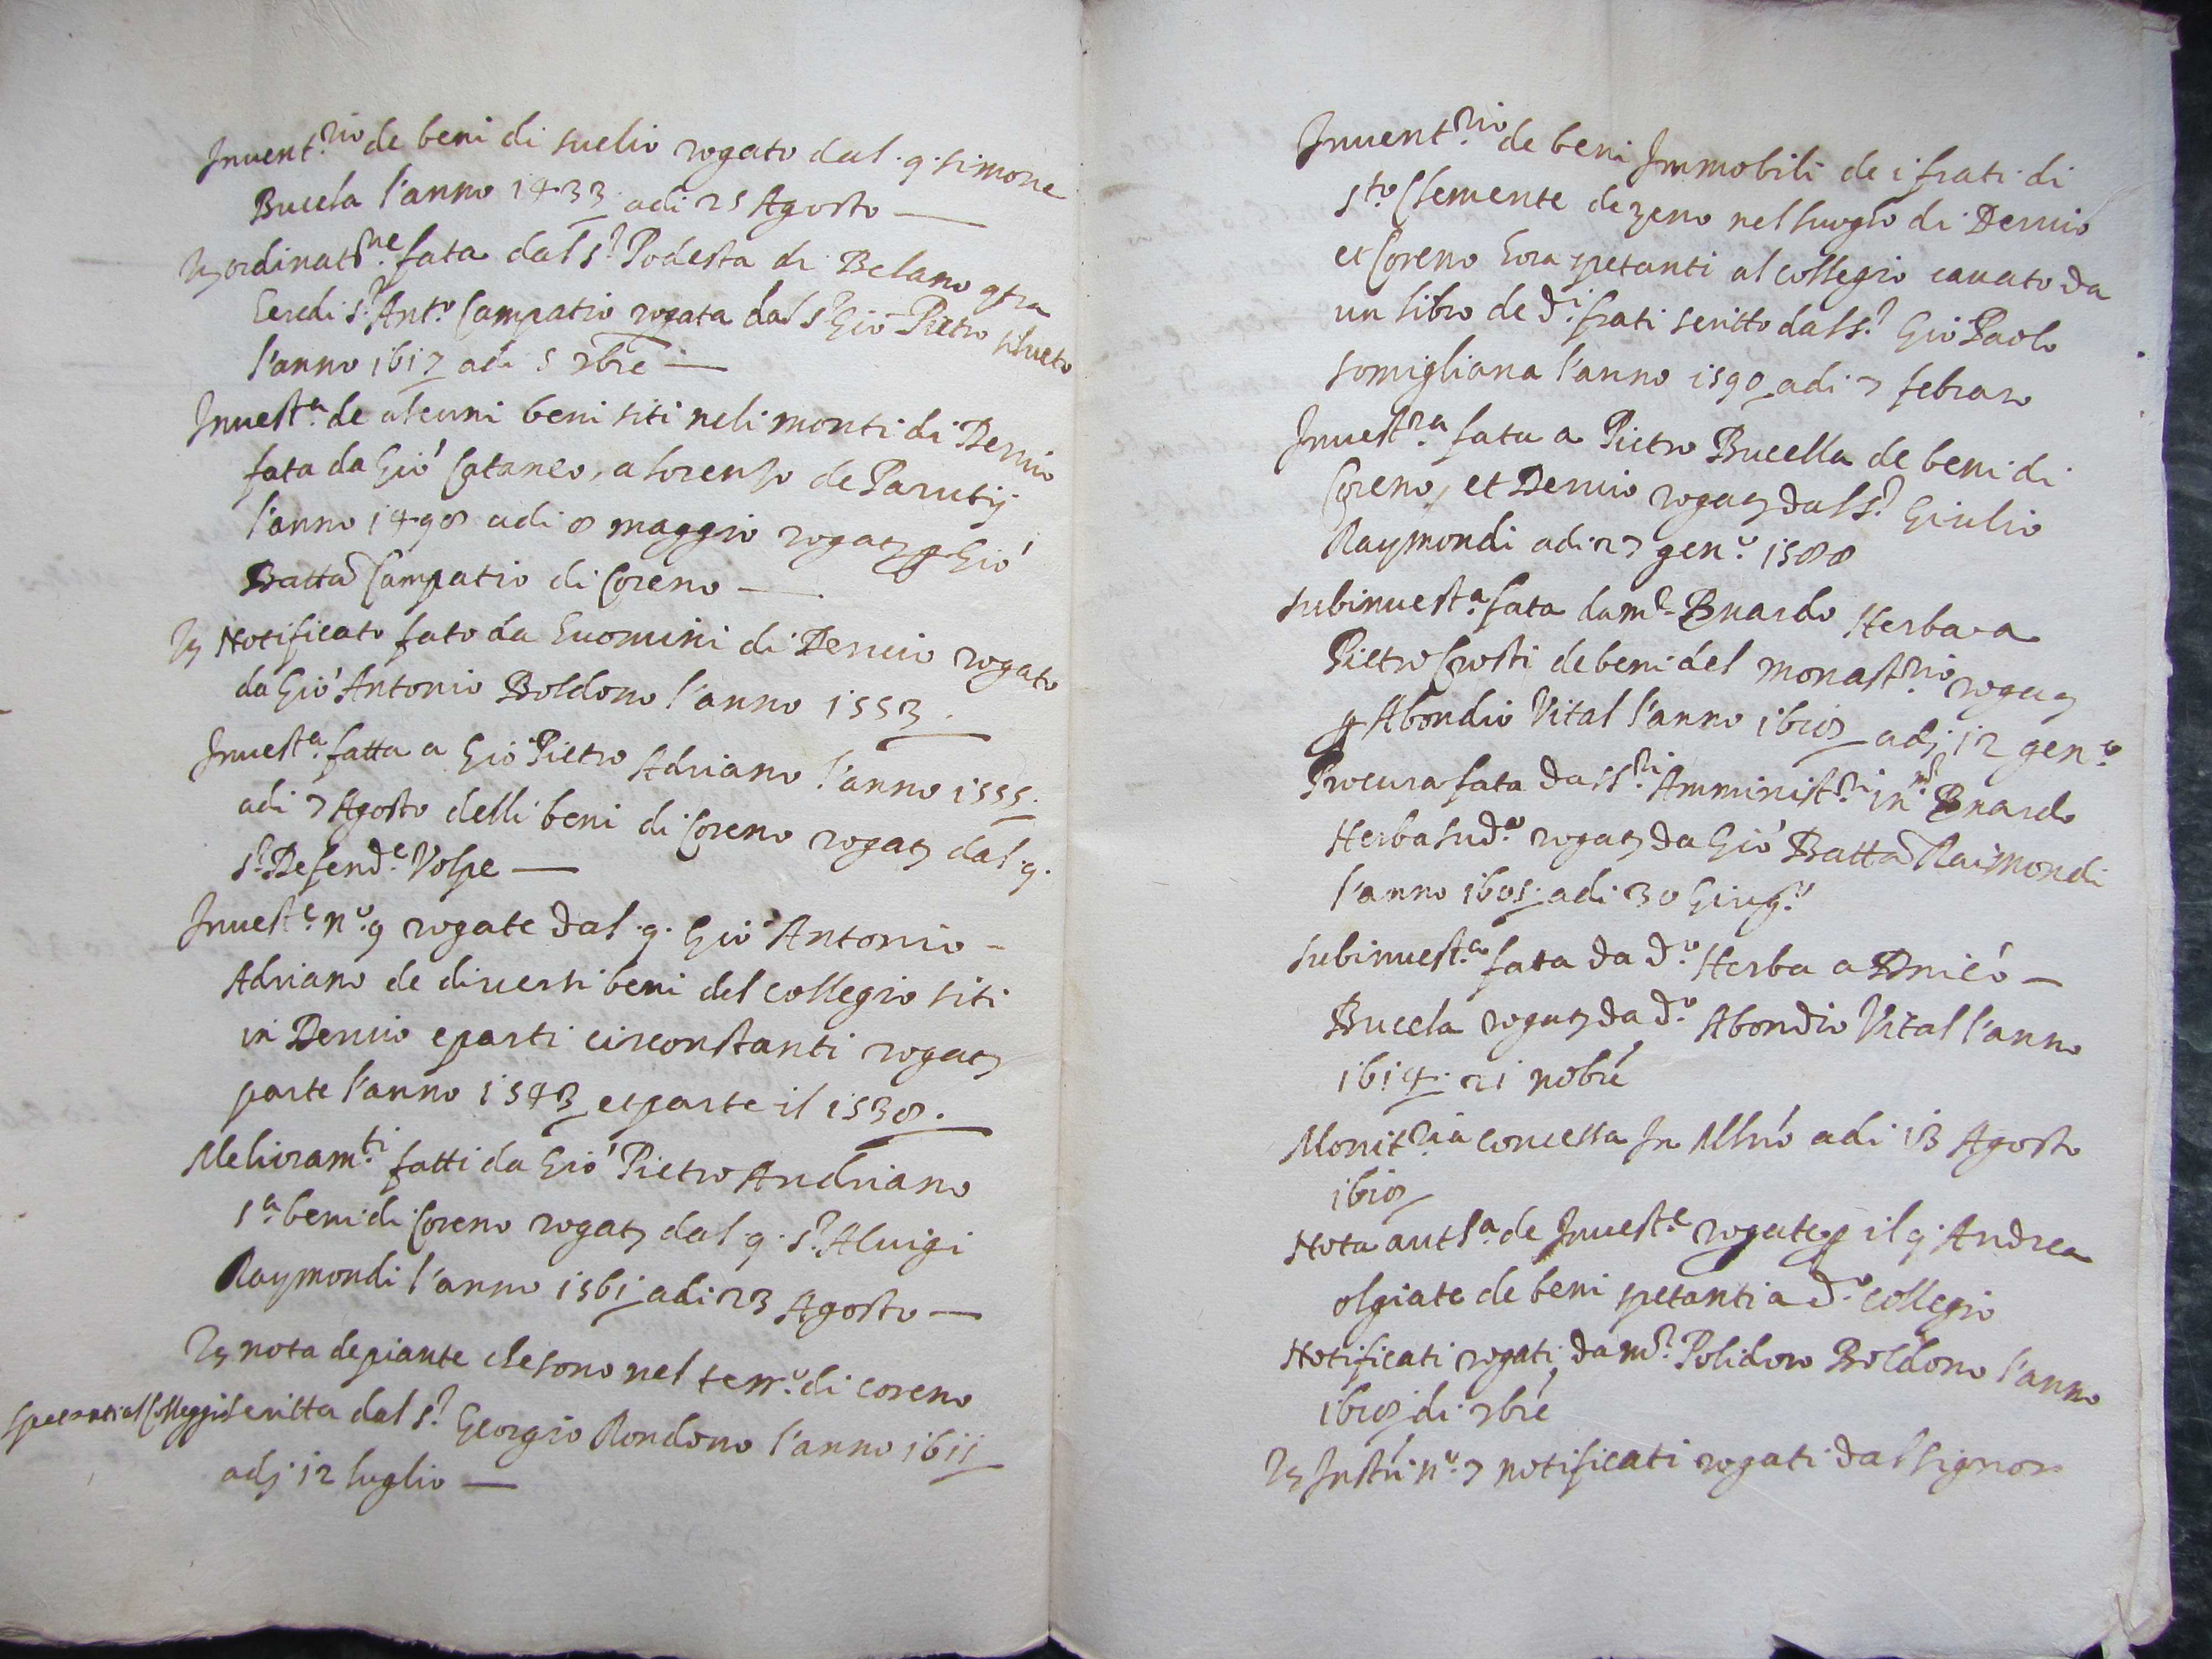 Inuent.rio de beni di suelio rogato dal .q. simone
Bucela l'anno 1433 adi 25 Agosto —
Iᵗ ordinat.ne fata dal s.r Podesta di Belano qtra
Eredi s.r Ant.o Campatio rogata dal s.r Gio Pietro
l'anno 1617 adi 5 xbre —
Inuest.a de alcuni beni siti neli monti di Deruio
fata da Gio Cataneo, a Lorenso de Parutij
l'anno 1498 adi 8 maggio rogat. p Gio
Batta Campatio di Coreno —
Iᵗ Notificato fato da huomini di Deruio rogato
da Gio Antonio Boldono l'anno 1553.
Inuest.a fatta a Gio Pietro Adriano l'anno 1555.
adi 7 Agosto delli beni di Coreno rogat. dal .q.
s.r Defend.e Volpe —
Inuest.e n.o 9 rogate dal .q. Gio Antonio -
Adriano de diuersi beni del collegio siti
in Deruio e parti circonstanti rogat.
parte l'anno 1543 et parte il 1538.
Melioram.ti fatti da Gio Pietro Andriano
s.a beni di Coreno rogat. dal .q. s.r Aluigi
Raymondi l'anno 1561 adi 23 Agosto —
Iᵗ nota de piante che sono nel terr.o di coreno
spetanti al Collegio scritta dal s.r Georgio Rondono l'anno 1611
adj 12 luglio —
Inuent.rio de beni Immobili de i frati di
s.to Clemente de zeno nel luogho di Deruio
et Coreno hora spetanti al collegio cauato da
un libro de d.i frati scritto dal s.r Gio Paolo
somigliana l'anno 1590 adi 7 febraro
Inuest.ra fata a Pietro Bucella de beni di
Coreno, et Deruio rogat. dal s.r Giulio
Raymondi adi 27 gen.o 1588
subinuest.a fata da m.r Bnardo Herba a
Pietro Crosti de beni del monast.rio rogat.
p Abondio Vital l'anno 1618 adj 12 gen.o
Procura fata da ss.ri Amminist.ri in m.r Bnardo
Herba sud.o rogat. da Gio Batta Raimondi
l'anno 1605 adi 30 Giug.o
subinuest.a fata da d.o Herba a Dnico —
Bucela rogat. da d.o Abondio Vital l'anno
1614. 21 nobre
Monit.ria concessa In adi 13 Agosto
1618
Nota de Inuest.e rogate p il q Andrea
olgiate de beni spetanti a d.o collegio
Notificati rogati da m.r Polidoro Boldono l'anno
1618 di xbre
Iᵗ Instri n.o 7 notificati rogati dal signor